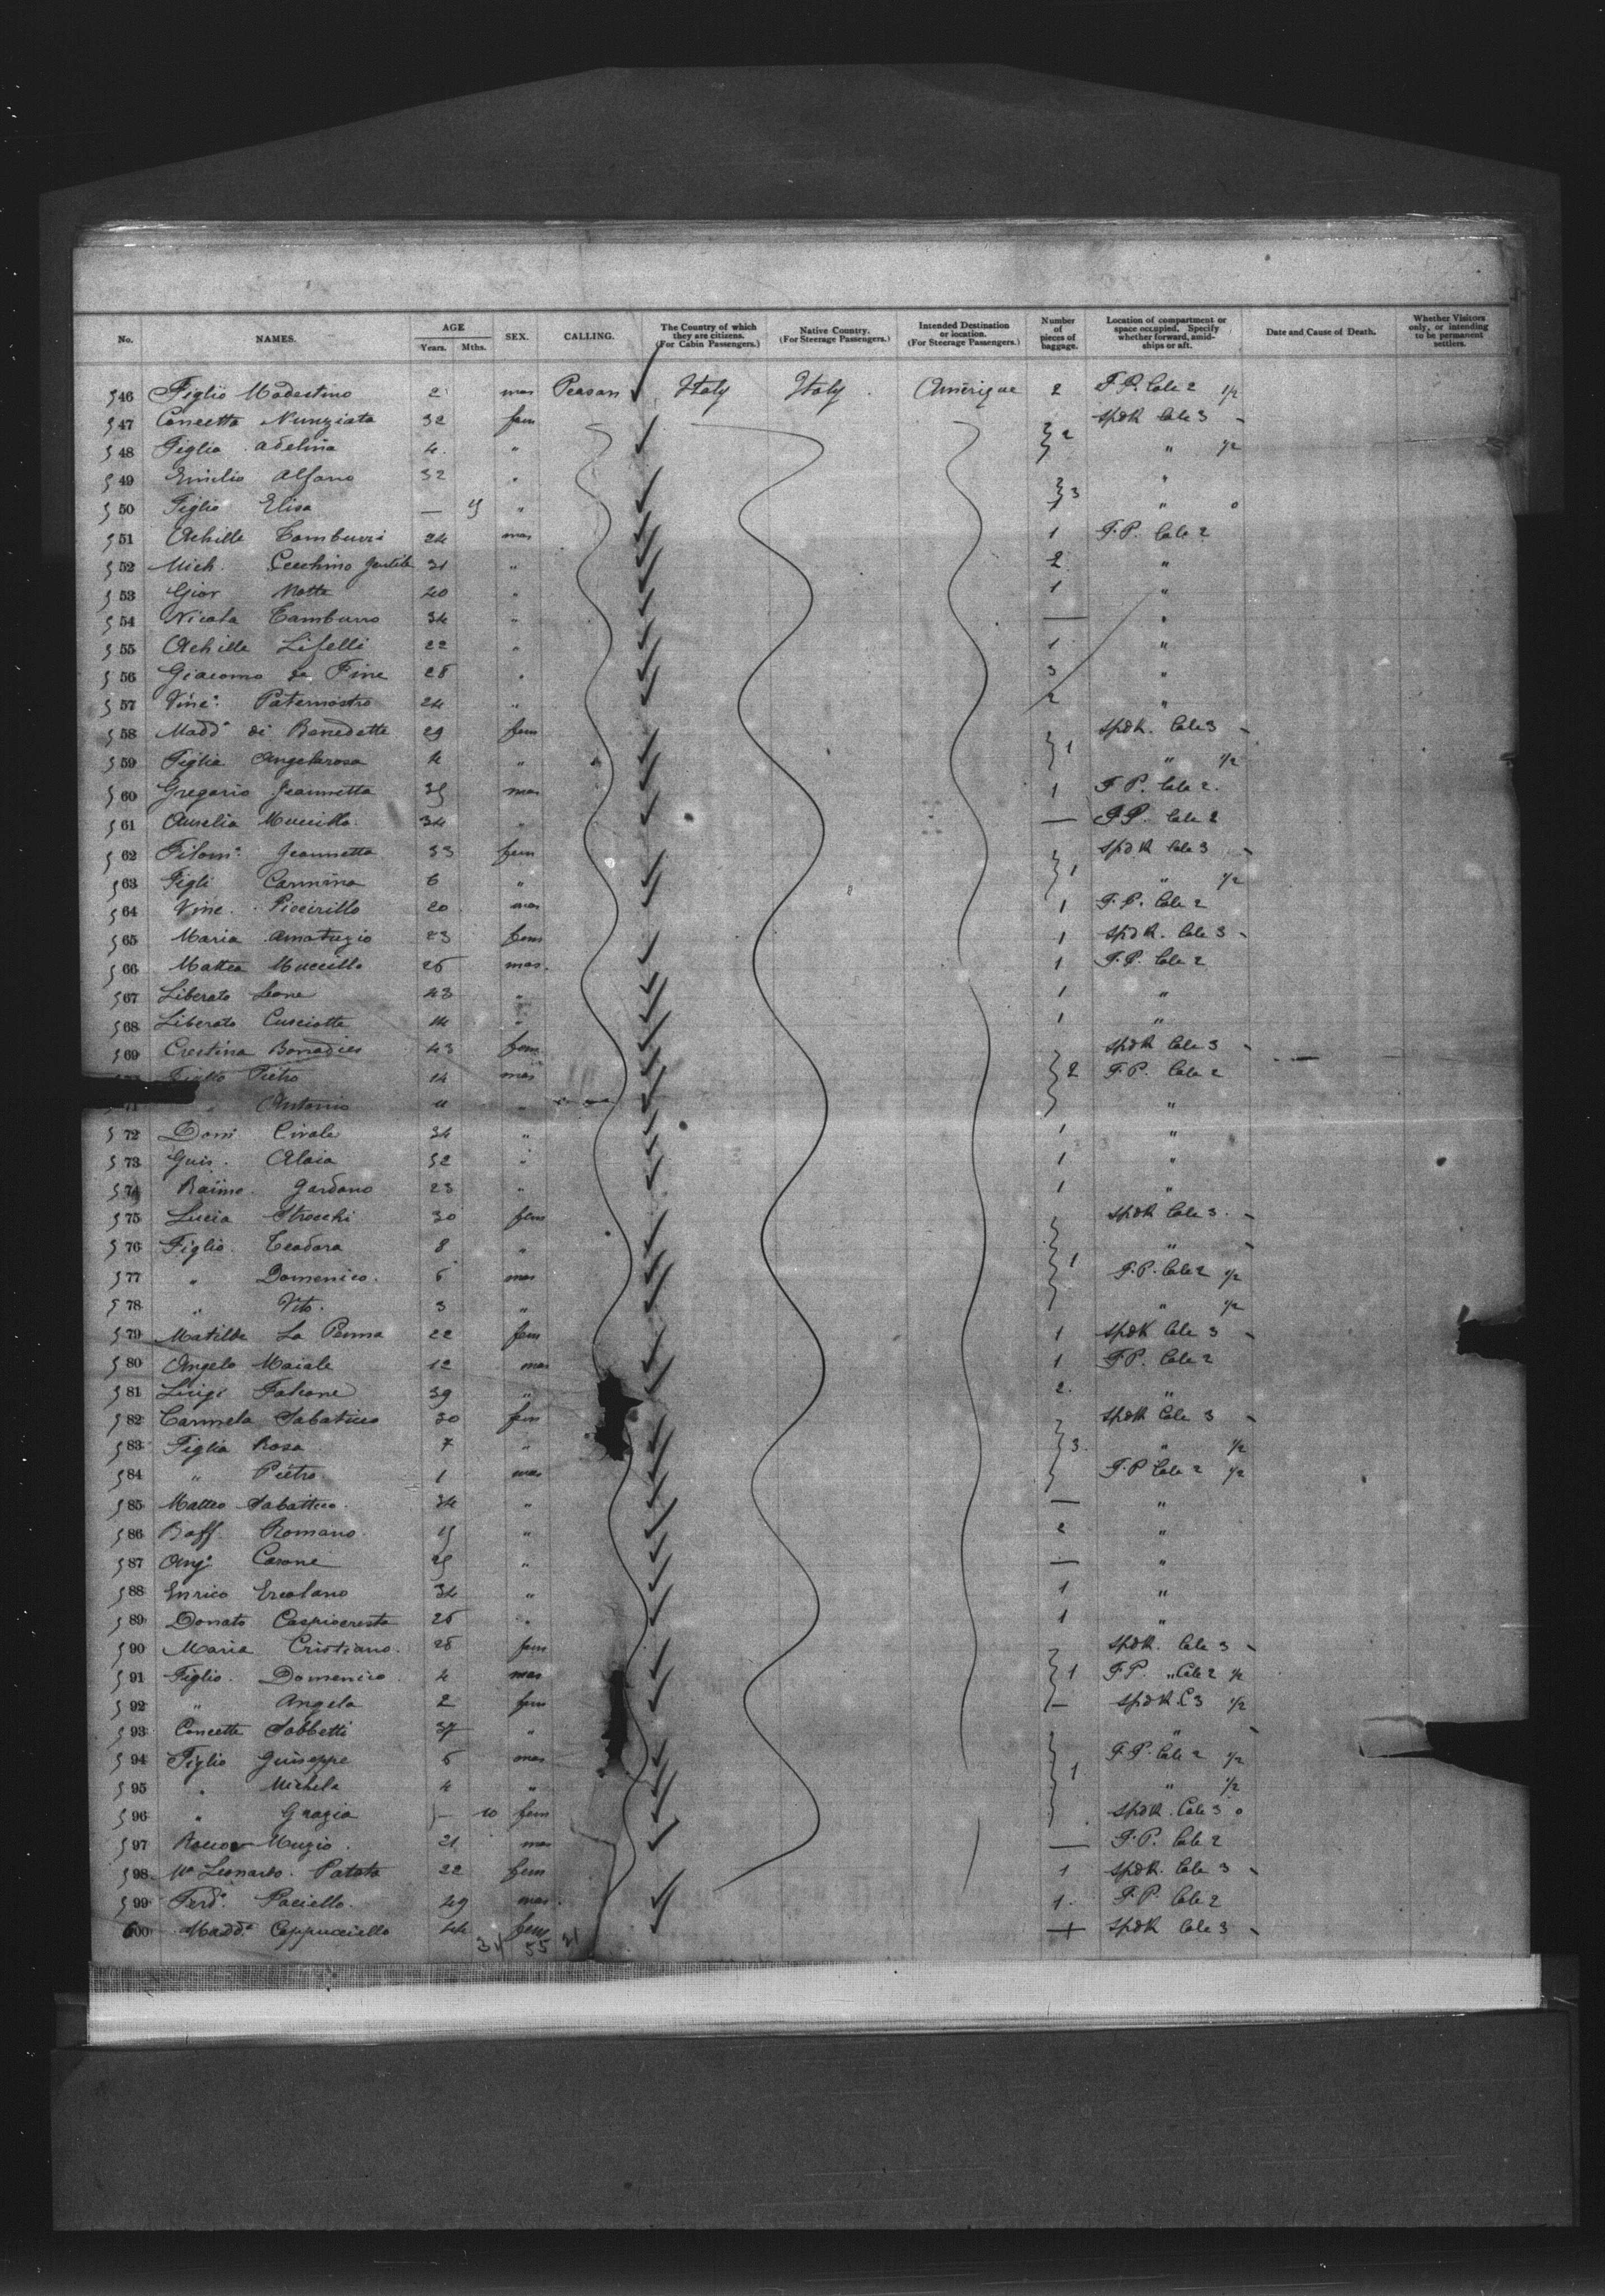 No. NAMES. AGE Years. Mths. SEX. CALLING. The Country of which they are citizens. (For Cabin Passengers.) Native Country. (For Steerage Passengers.) Intended Destination or location. (For Steerage Passengers.) Number of pieces of baggage. Location of compartment or space occupied. Specify whether forward, amidships or aft. Date and Cause of Death. Whether Visitors only, or intending to be permanent settlers.
546 Figlio Modestino 2 mas Peasan Italy Italy Amérique 2 F.P. Cale 2 1/2
547 Concetta Nunziata 32 fem spdk Cale 3 -
548 Figlia Adelina 4 " } 2 " 1/2
549 Emilio Alfano 32 " "
550 Figlio Elisa — 9 " } 3 " 0
551 Achille Tamburri 24 mas 1 F.P. Cale 2
552 Mich. Cecchino Gentile 31 " 2 "
553 Gior Motta 40 " 1 "
554 Nicola Tamburro 34 " — "
555 Achille Lifelli 22 " 1 "
556 Giacomo de Fine 28 " 3 "
557 Vinc. Paternostro 24 " 2 "
558 Madd. di Benedetto 29 fem spdk. Cale 3 -
559 Figlia Angelarosa 4 " } 1 " 1/2
560 Gregorio Jeannetta 35 mas 1 F.P. Cale 2.
561 Aurelia Muccillo 34 " — F.P. Cale 2
562 Filom. Jeannetta 33 fem spdk Cale 3 -
563 Figli Carmina 6 " } 1 " 1/2
564 Vinc. Piccirillo 20 mas 1 F.P. Cale 2
565 Maria Amatuzio 23 fem 1 spdk. Cale 3 -
566 Mattea Muccillo 26 mas. 1 F.P. Cale 2
567 Liberato Leone 43 " 1 "
568 Liberato Cusciotta 14 " 1 "
569 Crestina Bonadies 43 fem spdk Cale 3 -
Figlio Pietro 14 mas } 2 F.P. Cale 2
71 " Antonio 11 " "
572 Dom Civale 34 " 1 "
573 Guis. Alaia 52 " 1 "
574 Raimo. Gardano 23 " 1 "
575 Lucia Strocchi 30 fem spdk Cale 3. -
576 Figlio. Teodora 8 " " -
577 " Domenico. 6 mas } 1 F.P. Cale 2 1/2
578 " Vito. 3 " " 1/2
579 Matilde La Penna 22 fem 1 spdk Cale 3 -
580 Angelo Maiale 12 mas 1 F.P. Cale 2
581 Luigi Falcone 39 " 2. "
582 Carmela Sabatico 30 fem spdk Cale 3 -
583 Figlia Rosa 7 " } 3. " 1/2
584 " Pietro. 1 mas F.P. Cale 2 1/2
585 Matteo Sabattico. 34 " — "
586 Raff. Romano. " 2 "
587 Ang. Carone " — "
588 Enrico Ercolano 34 " 1 "
589 Donato 26 " 1 "
590 Maria Cristiano. 28 fem spdk. Cale 3 -
591 Figlio. Domenico. 4 mas } 1 F.P. " Cale 2 1/2
592 " Angela 2 fem — spdk C 3 1/2
593 Concetta Sabbetti 37 " " -
594 Figlio Guiseppe 6 mas } 1 F.P. Cale 2 1/2
595 " Michela 4 " " 1/2
596 " Grazia — 10 fem spdk. Cale 3 0
597 Rocco Muzio. 21 mas — F.P. Cale 2
598 Ma Leonardo. Patata 22 fem 1 spdk. Cale 3 -
599 Ferd. Paciello. 49 mas. 1. F.P. Cale 2
600 Madd. Cappucciello 44 fem spdk Cale 3 -
34 55 21